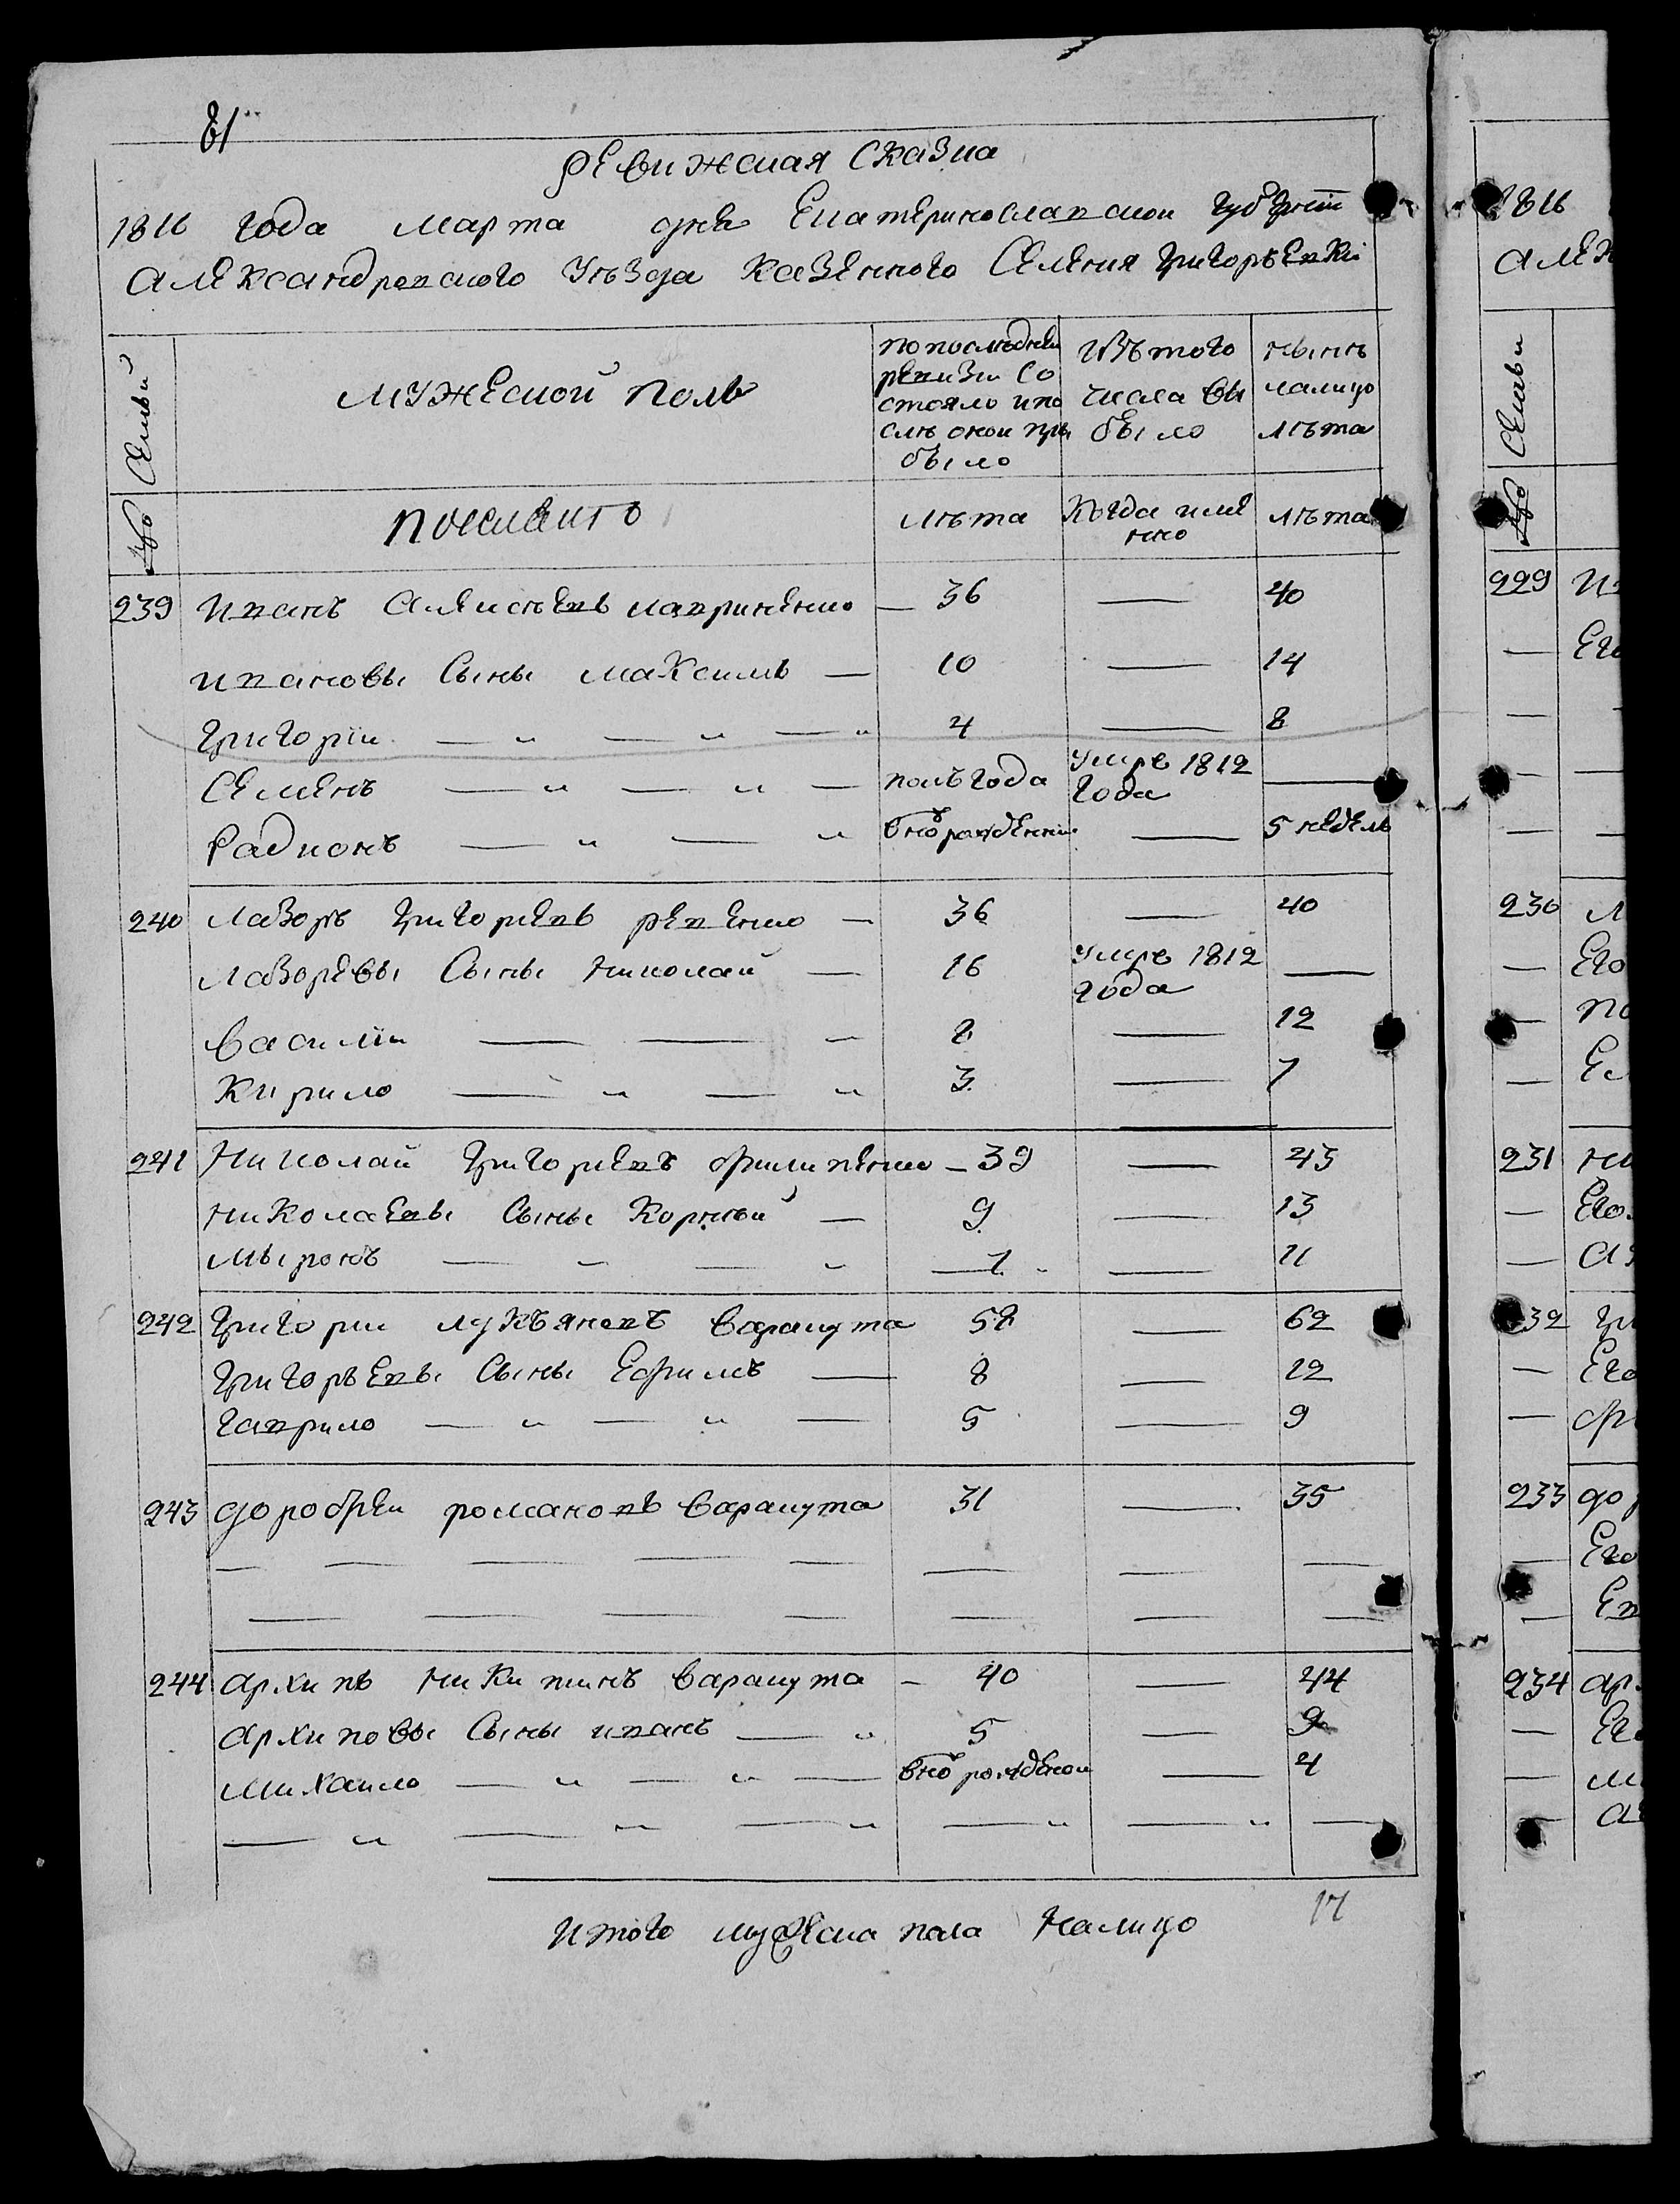 81
ревижская сказка
1816 года марта дня Екатеринославской губерніи
Александровского уѣзда казенного селения Григорьевки
№ Семьи
мужеской полъ
по последней ревизи состояло и после оной прибыло
изъ того числа выбыло
нынѣ налицо лѣта
лѣта
Когда име
нно
лѣта
239 Иванъ Алексѣевъ Лавриненко — 36 — 40
Ивановы Сыны Максимъ — 10 — 14
Григории — „ — „ — „ 4 — 8
Семенъ — „ — „ — полъгода умре 1812 года —
Радионъ — „ — „ внов рожденни — 5 недель
240 Лазоръ Григориевъ Ревенко — 36 — 40
Лазоревы Сыны Николай — 16 умре 1812 года —
Василии — — — 8 — 12
Кирило — „ — „ 3 — 7
241 Николай Григориевъ Филипенко — 39 — 43
Николаевы Сыны Корнѣй — 9 — 13
Мыронъ — „ — „ 7 — 11
242 Григории Лукъяновъ Варакута 58 — 62
Григорьевы Сыны Ефимъ — 8 — 12
Гаврило — „ — „ — 5 — 9
243 Дорофеи Романовъ Варакута 31 — 35
244 Архипъ Никитинъ Варакута — 40 — 44
Архиповы Сыны Иванъ — „ 5 — 9
Михаило — „ — „ — внов рожденои — 4
Итого мужеска пола налицо 17
1816
Алек
№ Семьи
229 Ив
— Его
230 Л
— Его
— По
— Ел
231 Ни
— Его
— Аѳ
232 Гр
— Его
— Фи
233 До
— Его
— Ев
234 Ар
— Ег
— М